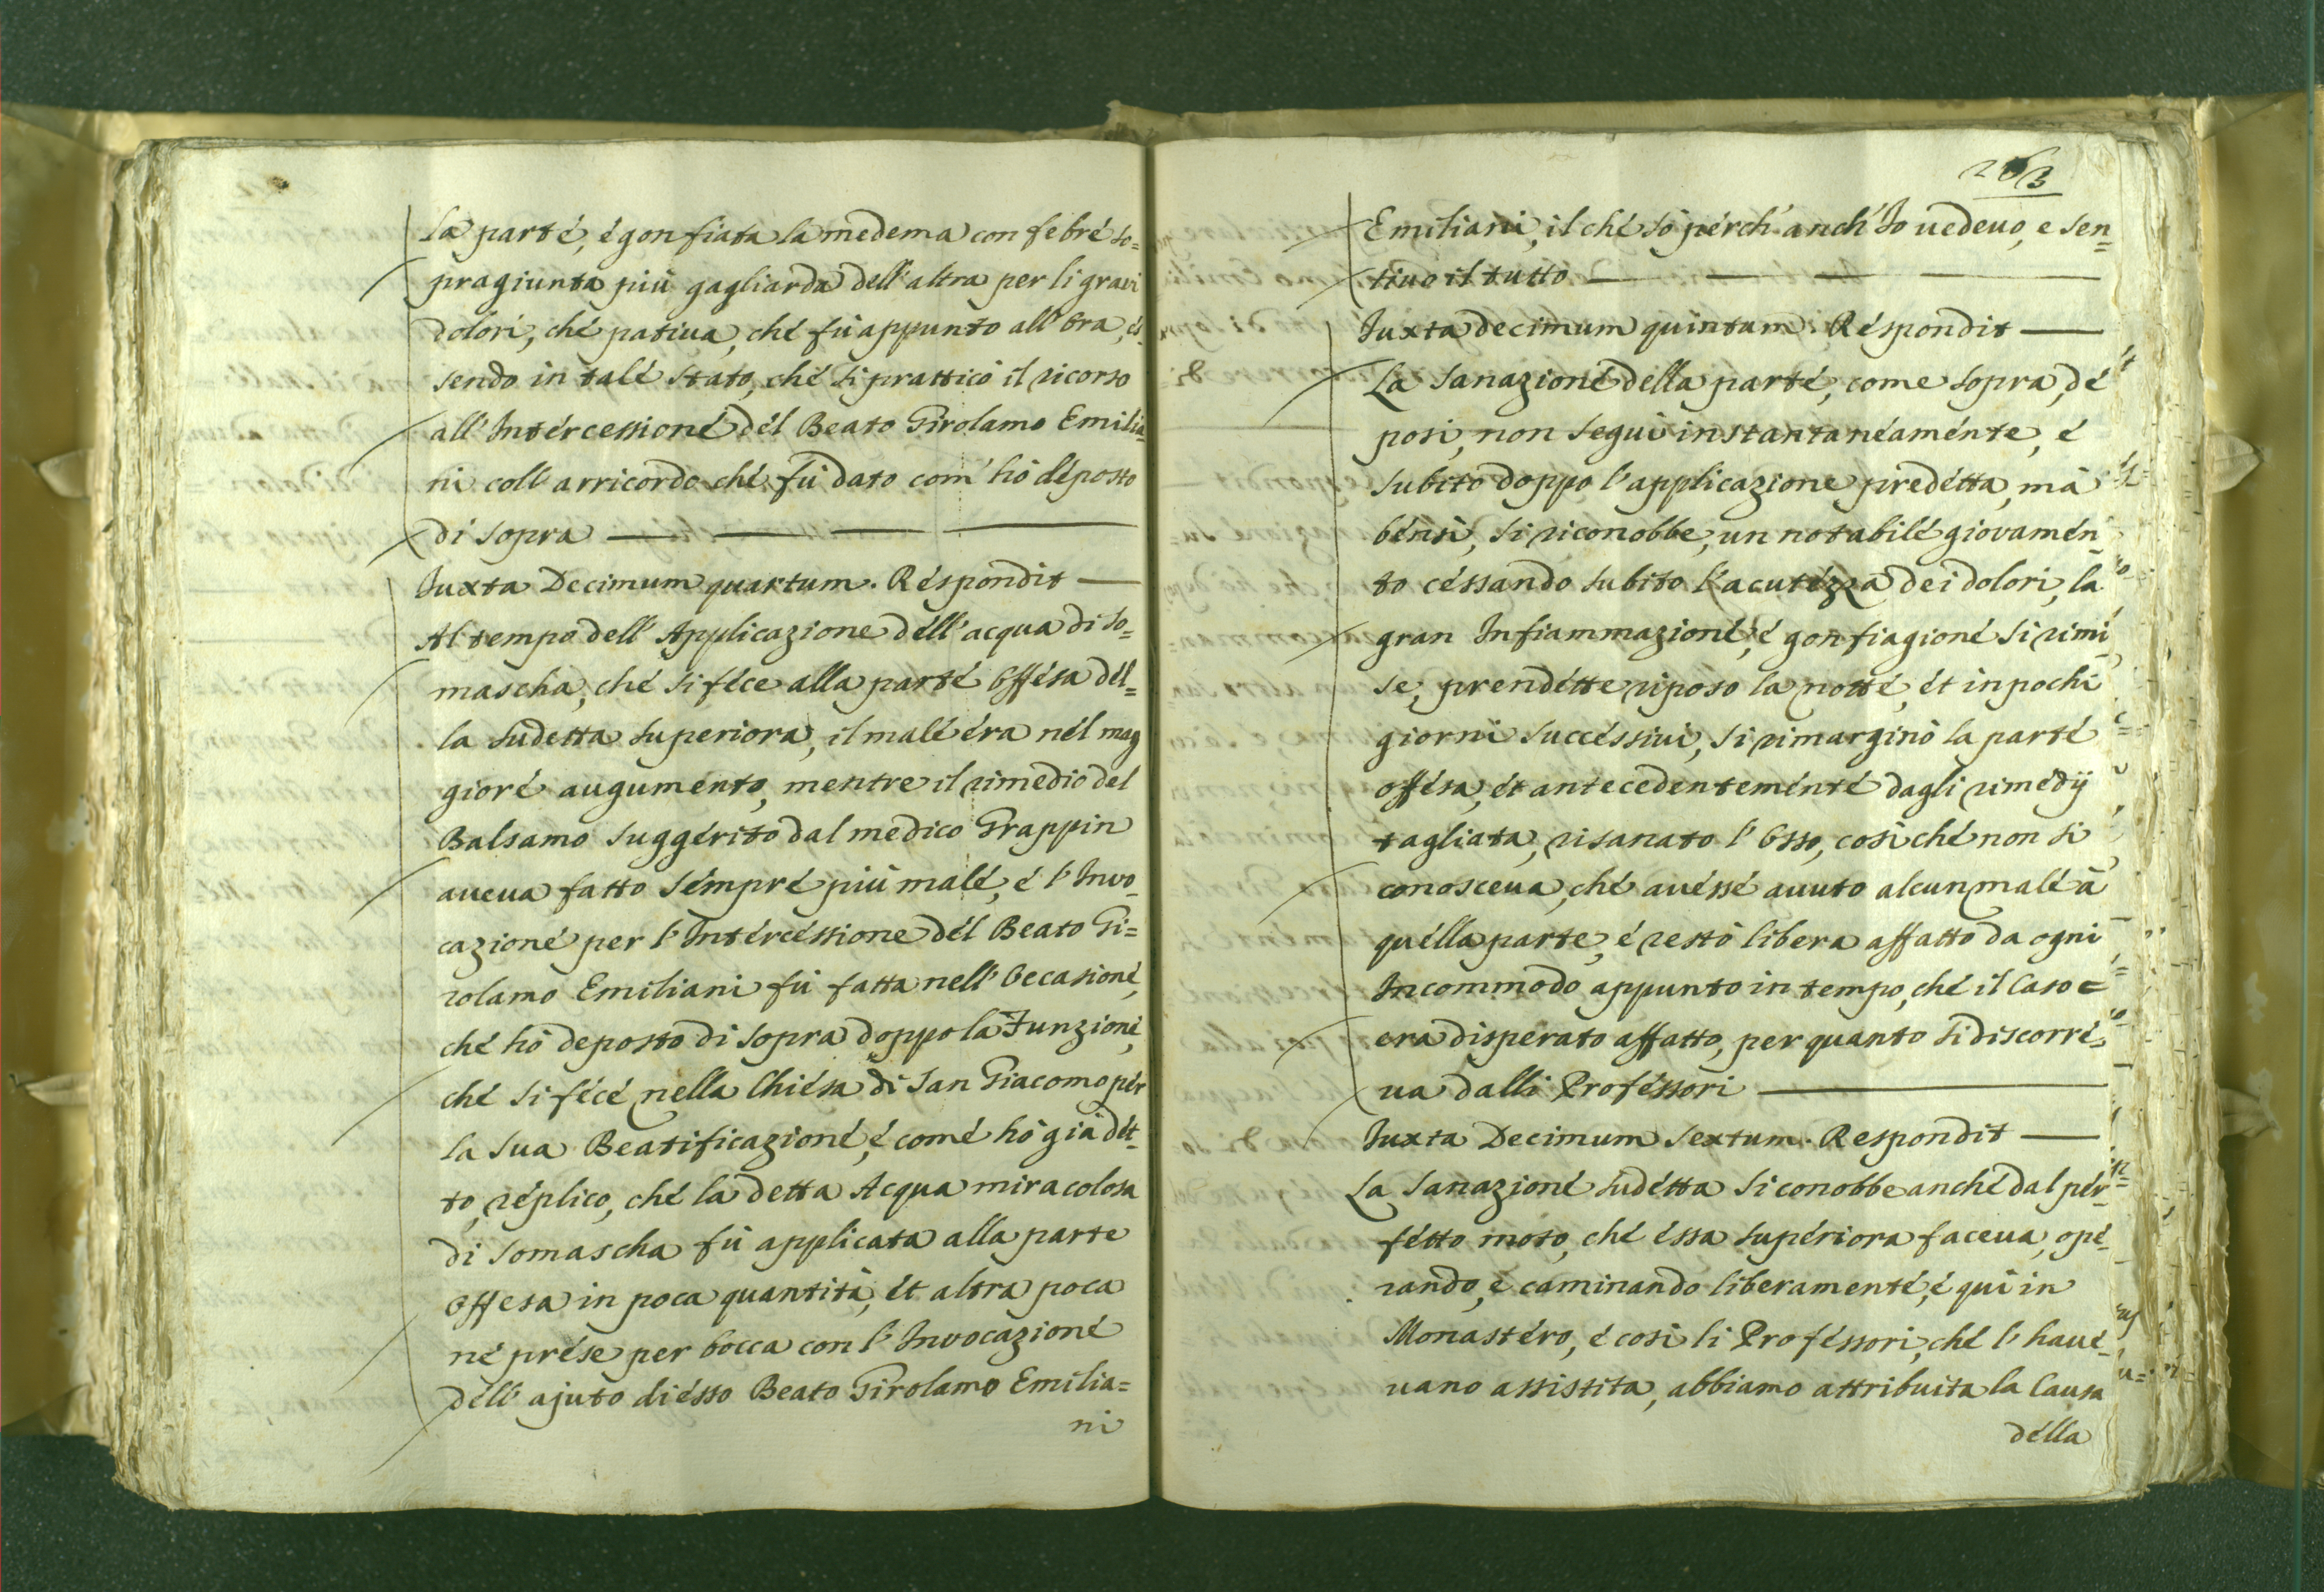 la parté, é gonfiata la medema con febré so=
pragiunta più gagliarda dell'altra per li gravi
dolori, ché patiua, ché fù appunto all'Ora, és-
sendo in talé stato, ché si pratticò il ricorso
all'Intércessioné dél Beato Girolamo Emilia-
ni coll'arricordo ché fù dato com' hò déposto
di sopra
Iuxta Decimum quartum. Réspondit
Al tempo dell'Applicazione déll'acqua di So=
mascha, ché si féce alla parté Offésa dél=
la sudetta superiora, il malé éra nél mag
gioré augumento, mentre il rimedio del
Balsamo suggérito dal medico Grappin
aueua fatto sémpré più malé, é l'Invo-
cazioné per l'Intércéssione dél Beato Gi=
rolamo Emiliani fù fatta nell'Occasioné,
ché hò deposto di sopra doppo la Funzioné,
ché si fécé nella Chiésa di San Giacomo pér
la sua Beatificazioné, é comé hò già dét-
to, réplico, ché la detta Acqua miracolosa
di Somascha fù applicata alla parte
Offesa in poca quantità, ét altra poca
né prése per bocca con l'Invocazioné
déll'ajuto di ésso Beato Girolamo Emilia=
ni
263
Emiliani, il ché sò pérch'anch'Io uedeuo, e sen=
tiuo il tutto
Iuxta decimum quintum. Réspondit
La Sanazioné della parté, come sopra, dé
posi, non seguì instantanéaménte, é
subito doppo l'applicazione predétta, mà
bénsì, si riconobbe, un notabilé giovamén
to céssando subito l'acutézza dei dolori, la
gran Infiammazioné, é gonfiagioné si rimi
se, prendétte riposo la notté, ét in pochi
giorni succéssiui, si rimarginò la parté
offésa, ét antecedenteménté dagli rimédij
tagliata, risanato l'Osso, cosi ché non si
conosceua, ché auéssé auuto alcun malé à
quélla parte, é restò libera affatto da ogni
Incommodo appunto in tempo, ché il Caso =
era disperato affatto, per quanto si discorré-
ua dalli Proféssori
Iuxta Decimum Sextum. Respondit
La Sanazioné sudétta si conobbe anché dal pér-
fétto moto, ché éssa supériora faceua, opé-
rando, e caminando liberamenté, é quì in
Monastéro, é cosi li Proféssori, ché l'haué-
uano assistita, abbiamo attribuita la Causa
délla